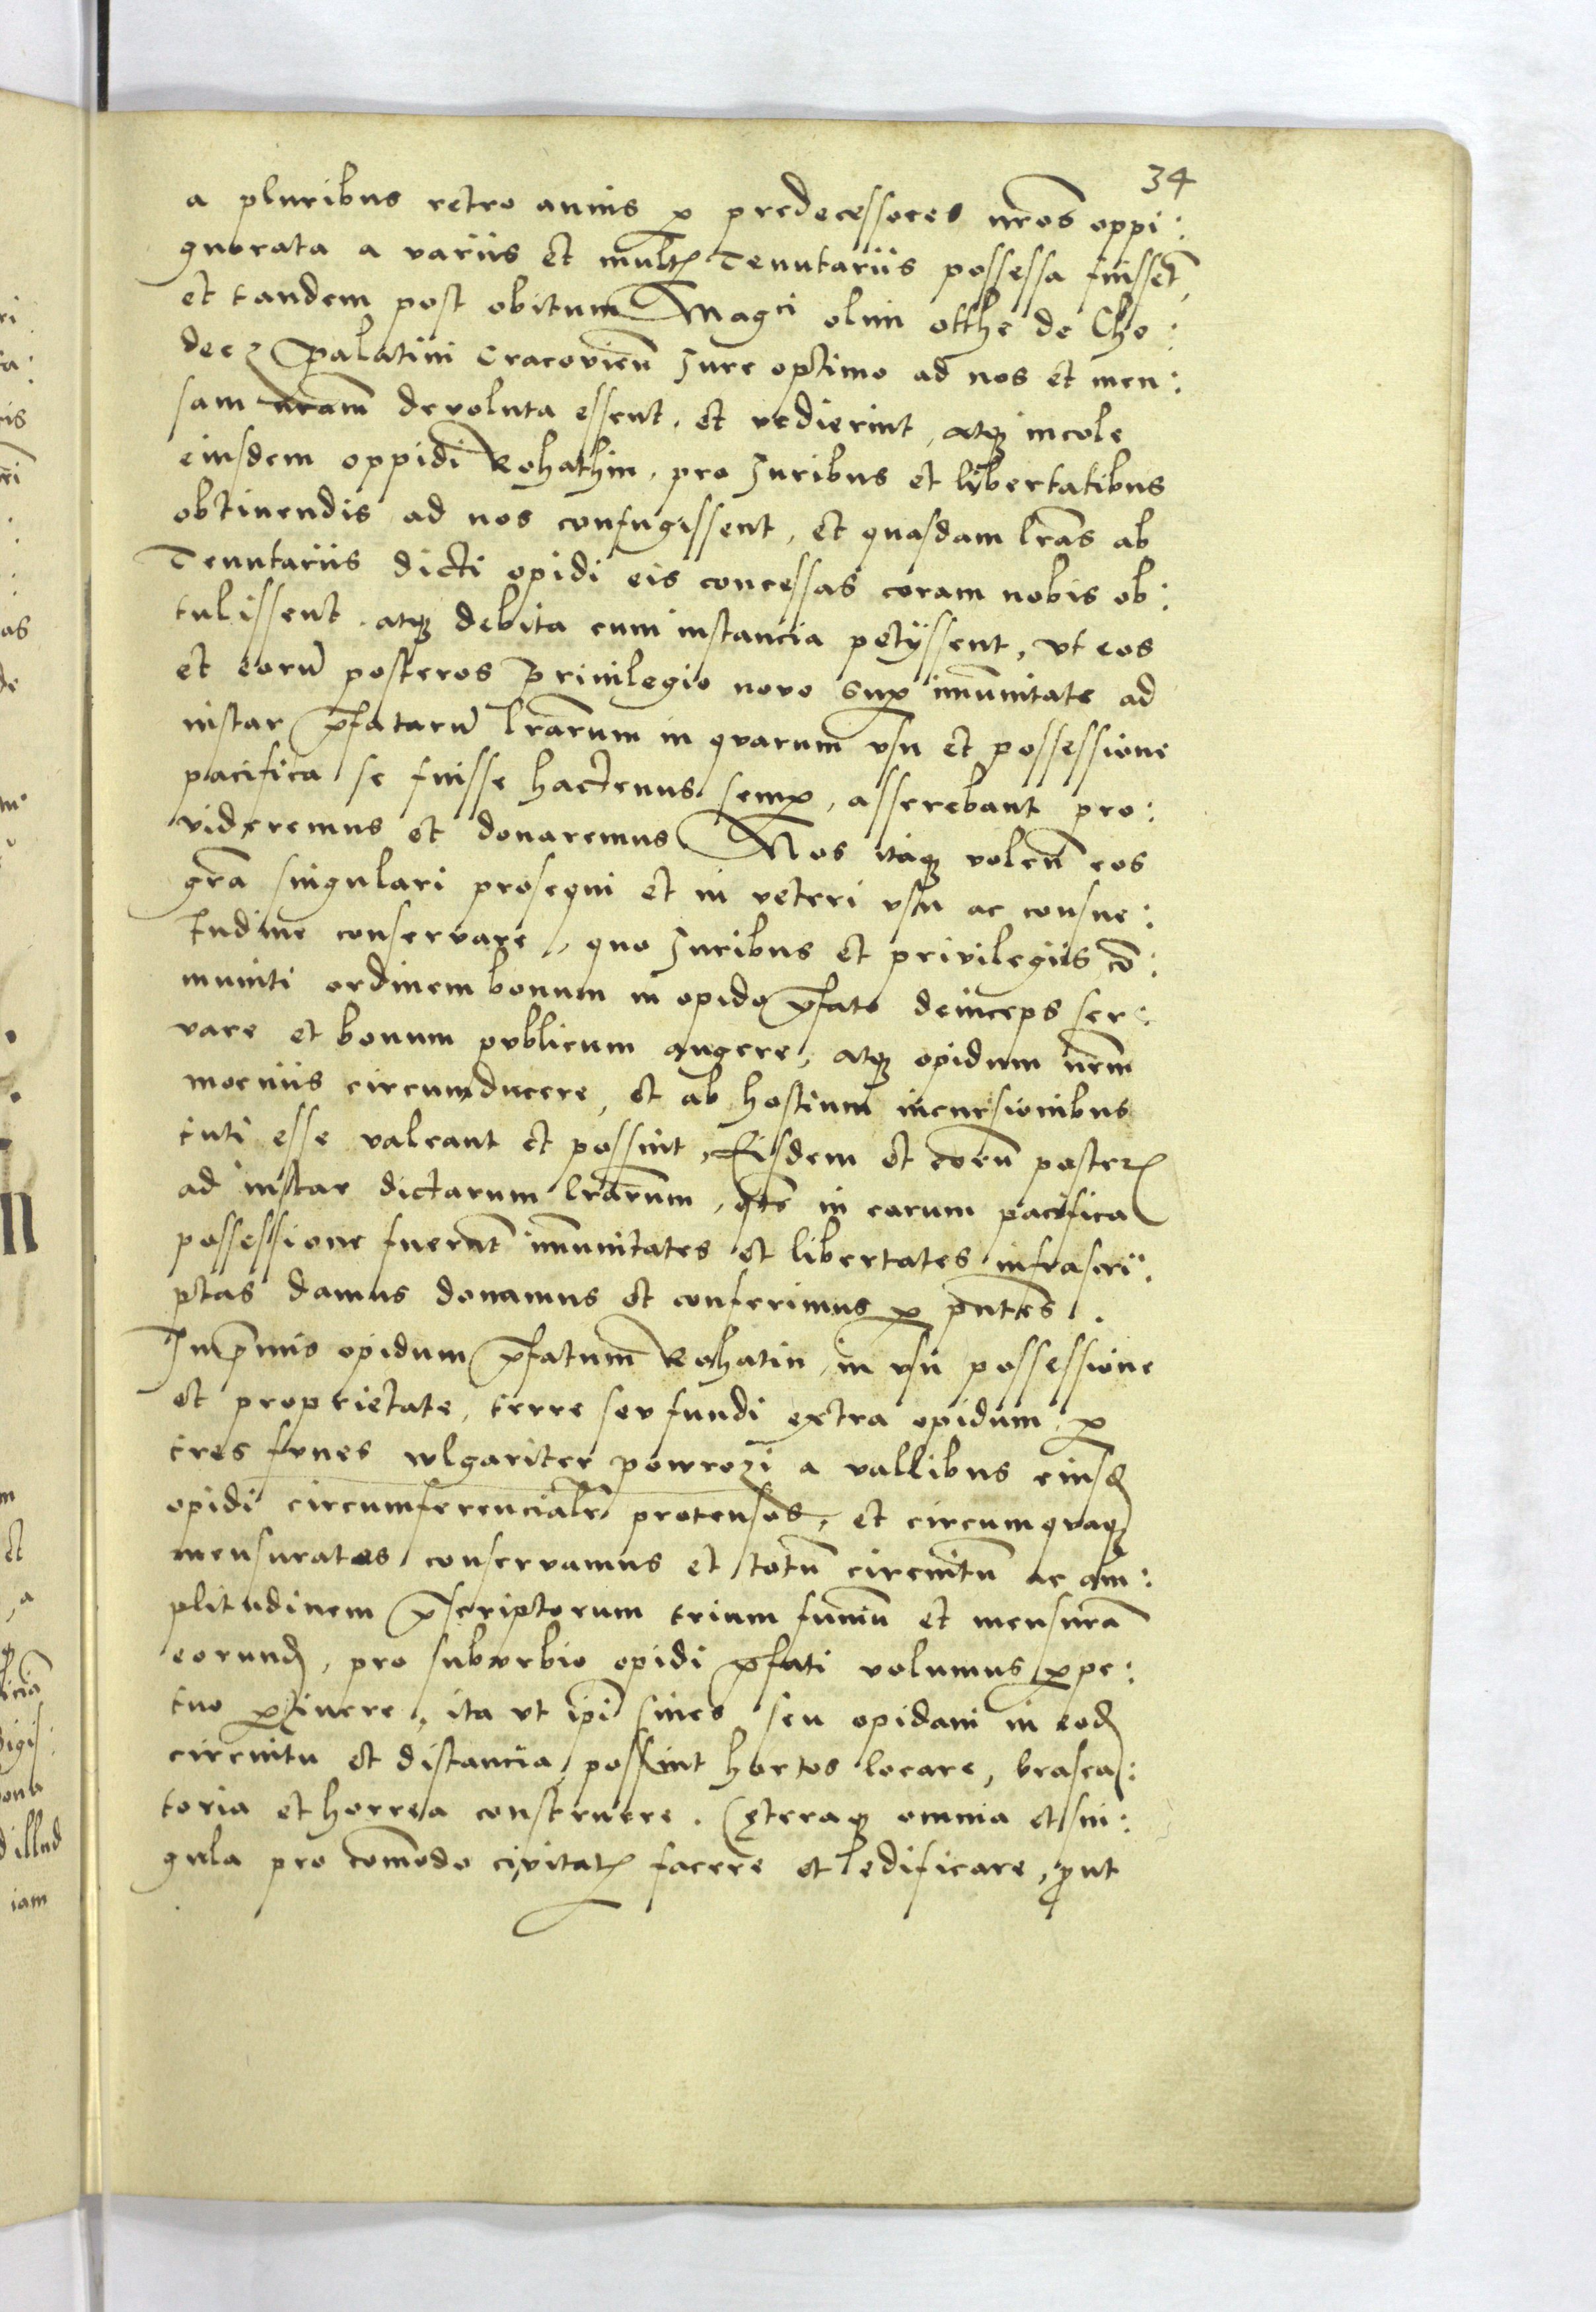 34
a pluribus retro annis p̱ predecessores nr̃os oppi:
gnorata a variis et mult̃ Tenutariis possessa fuissẽt,
et tandem post obitum Magci olim otthe de Cho:
decz palatini Cracovien̄ Jure optimo ad nos et men:
sam nr̃am devoluta essent, et redierint, atq; incole
eiusdem oppidi Rohathin, pro Juribus et lybertatibus
obtinendis ad nos confugissent, et quasdam l̃ras ab
Tenutariis dicti opidi eis concessas coram nobis ob:
tulissent. atq; debita cum instancia petyssent, vt eos
et eorū posteros Privilegio novo sup̱ im̄unitate ad
instar p̃fatarū l̃rarum in quarum vsu et possessione
pacifica se fuisse hactenus semp̱, asserebant pro:
videremus et donaremus Nos itaq; volen̄ eos
gr̃a singulari prosequi et in veteri vsu ac consue:
tudine conservare, quo Juribus et privilegiis cō:
muniti ordinem bonum in opido p̃fato deinceps ser:
vare et bonum publicum augere, atq; opidum nr̃m
moeniis circumducere, et ab hostium incursionibus
tuti esse valeant et possint, Eisdem et eorū poster̃
ad instar dictarum l̃rarum, q̃ꝫ in earum pacifica
possessione fuerūt im̄unitates et libertates infrascri:
ptas damus donamus et conferimus p̱ p̃ntes.
Inp̃mis opidum p̃fatum Rohatin, in vsu possessione
et proprietate, terre seu fundi extra opidum p̱
tres funes wlgariter powrozi a vallibus eiusd̃
opidi circumferencialr̃ protensos, et circumquaq;
mensuratos conservamus et totū circuitū ac am:
plitudinem p̃scriptorum trium funiū et mensurā
eorund̃, pro suburbio opidi p̃fati volumus p̱pe:
tuo p̱tinere, ita vt ip̃i cives seu opidani in eod̃
circuitu et distancia possint hortos locare, brasea:
toria et horrea construere. Ceteraq; omnia et sin:
gula pro com̄odo civitat̃ facere et edificare, prout